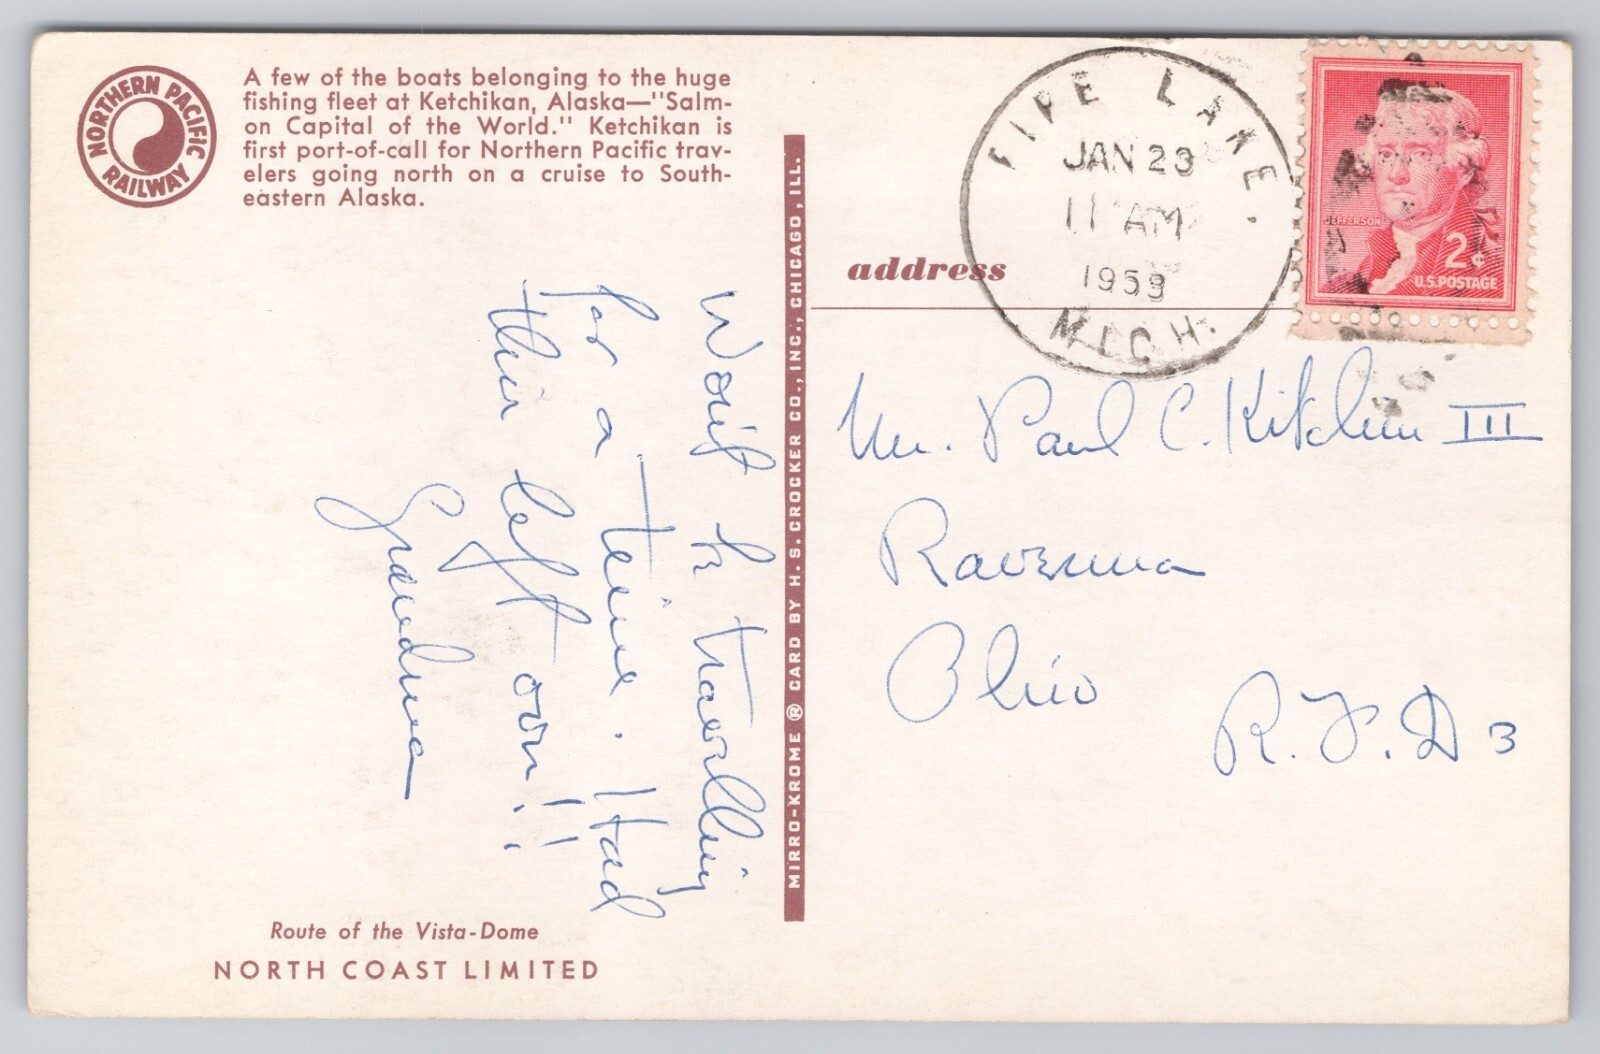 NORTHERN PACIFIC
RAILWAY
A few of the boats belonging to the huge
fishing fleet at Ketchikan, Alaska—"Salm-
on Capital of the World." Ketchikan is
first port-of-call for Northern Pacific trav-
elers going north on a cruise to South-
eastern Alaska.
Won't be travelling
for a time. Had
this left over!!
Grandma
Route of the Vista-Dome
NORTH COAST LIMITED
MIRRO-KROME ® CARD BY H. S. CROCKER CO., INC., CHICAGO, ILL.
address
FIFE LAKE.
JAN 23
11 AM
1959
MICH.
JEFFERSON
2¢
U.S. POSTAGE
Mr. Paul C. Kitchin III
Ravenna
Ohio
R.F.D 3